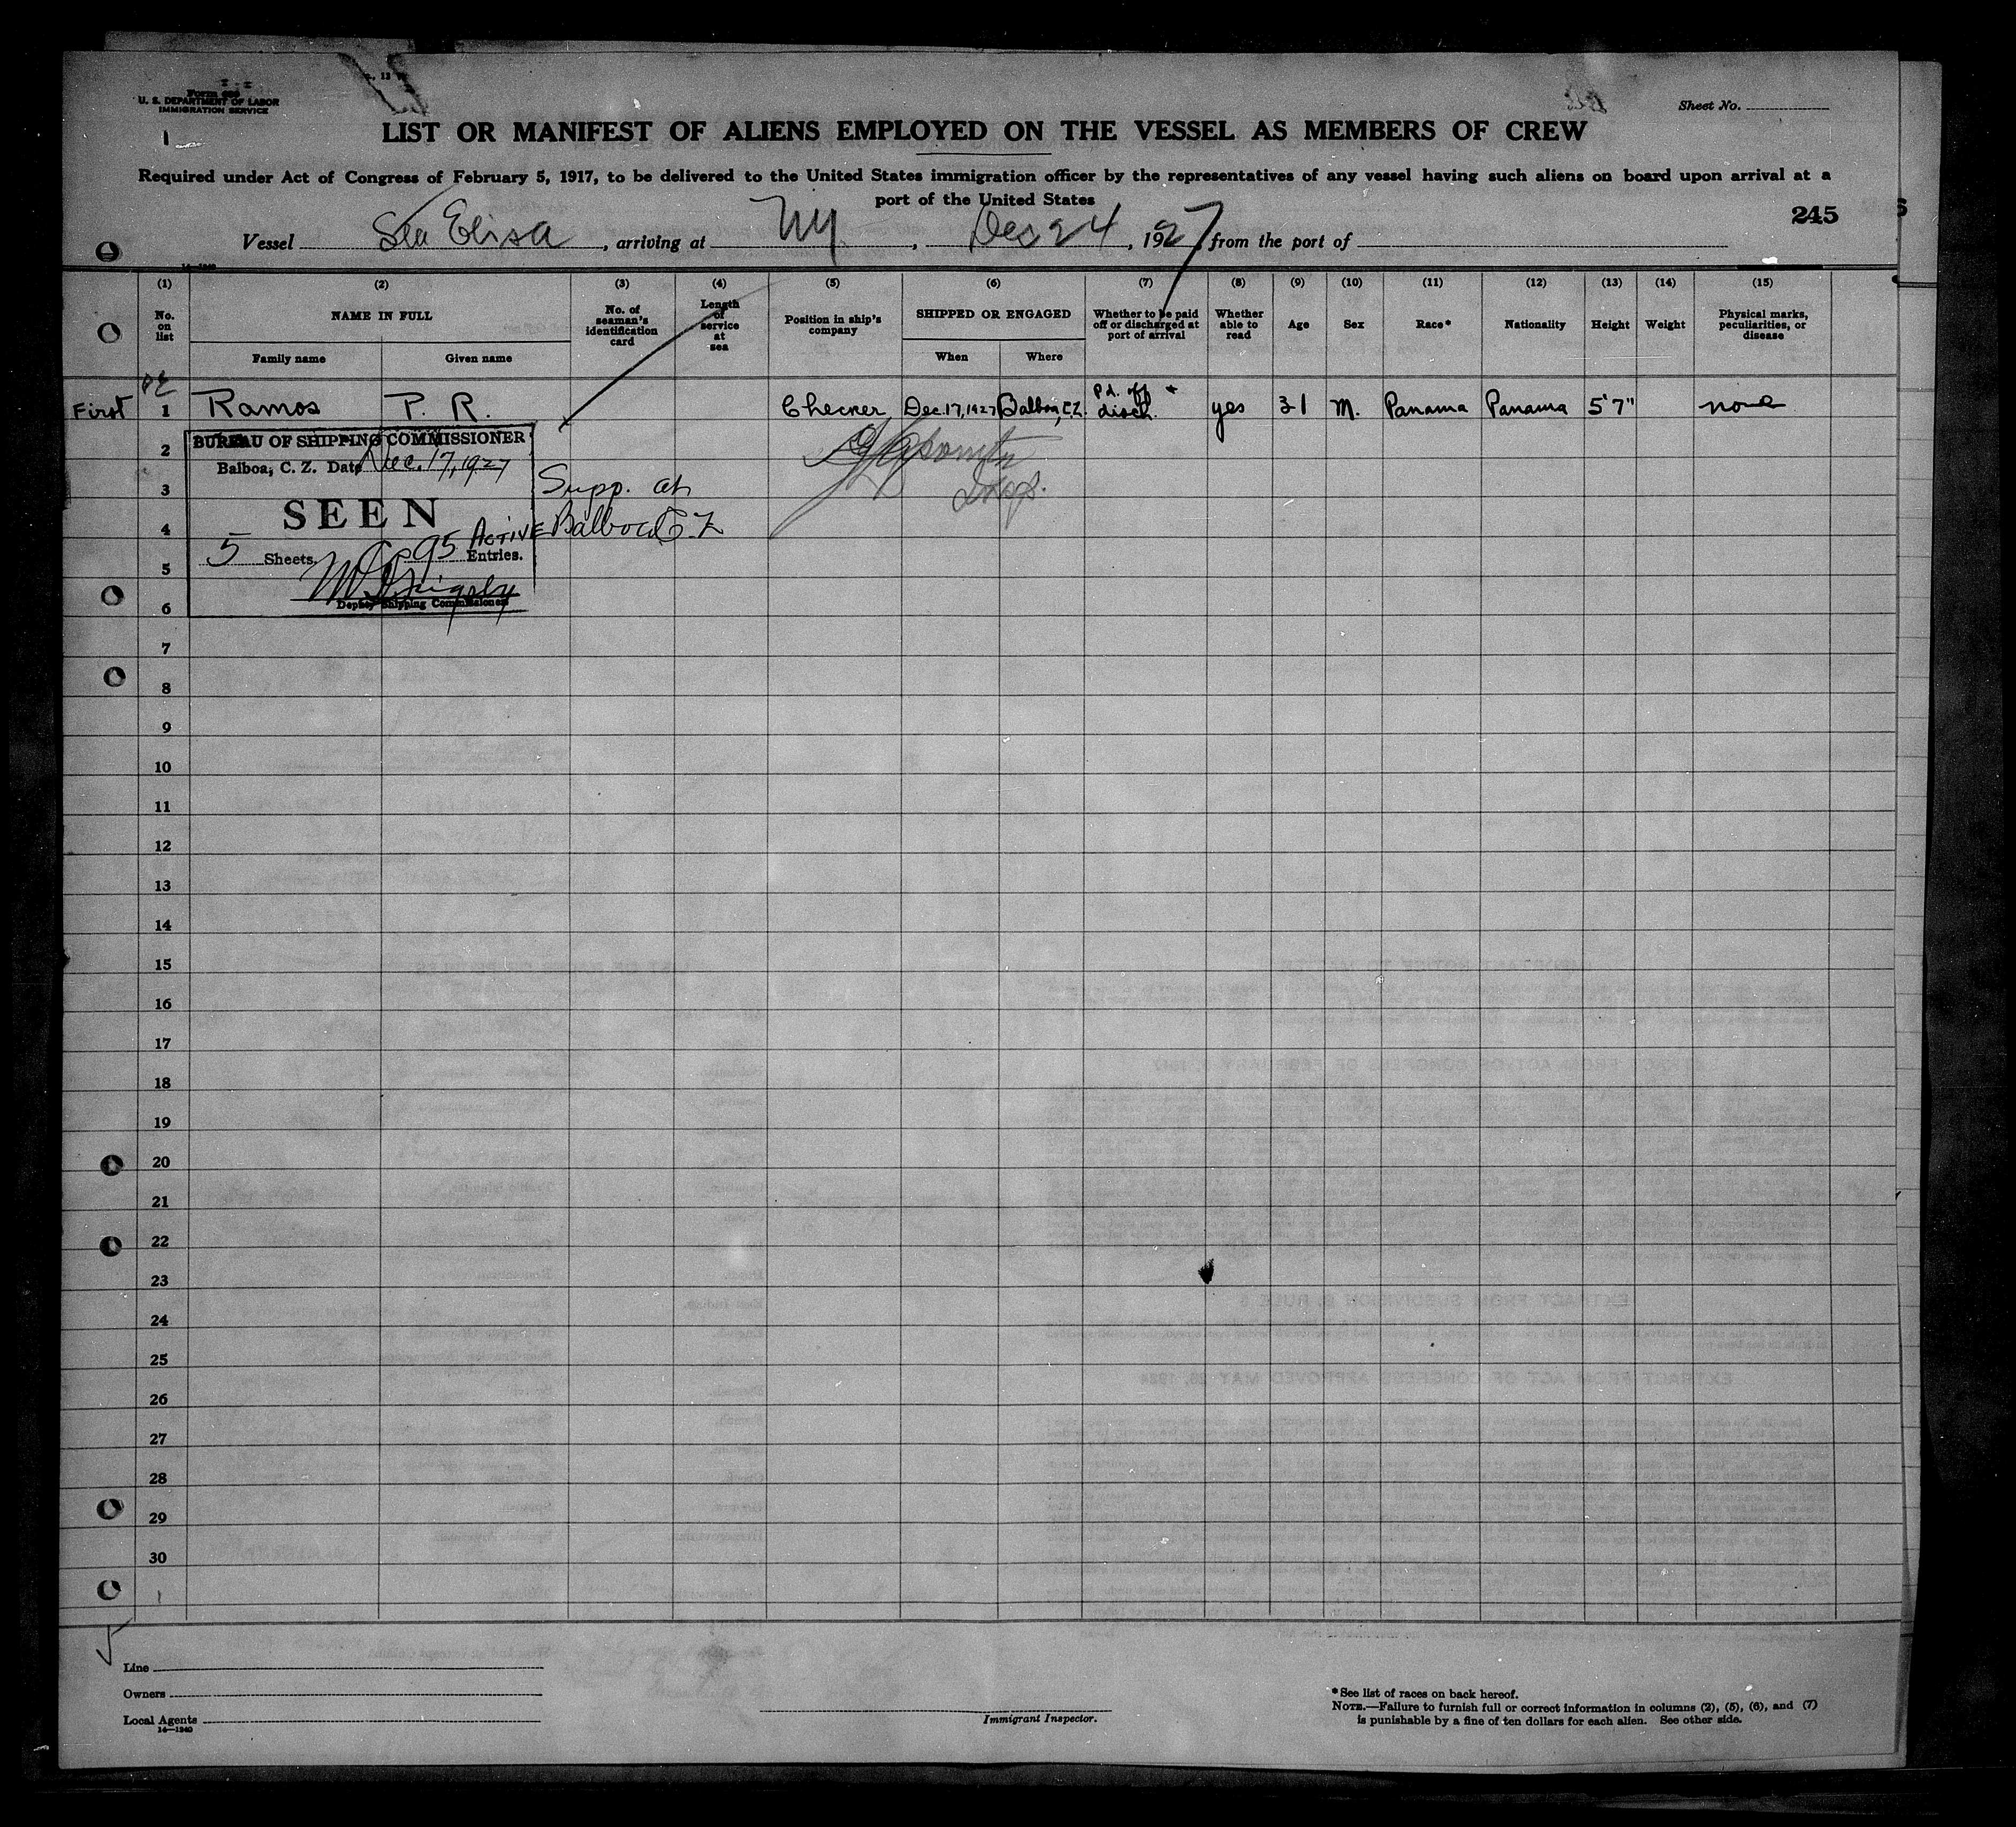 Form 689
U. S. DEPARTMENT OF LABOR
IMMIGRATION SERVICE
Sheet No.
1
LIST OR MANIFEST OF ALIENS EMPLOYED ON THE VESSEL AS MEMBERS OF CREW
Required under Act of Congress of February 5, 1917, to be delivered to the United States immigration officer by the representatives of any vessel having such aliens on board upon arrival at a
port of the United States
245
Vessel Sta Elisa, arriving at NY, Dec 24, 1927, from the port of
14—1940
(1) (2) (3) (4) (5) (6) (7) (8) (9) (10) (11) (12) (13) (14) (15)
No. on list
NAME IN FULL
Family name Given name
No. of seaman's identification card
Length of service at sea
Position in ship's company
SHIPPED OR ENGAGED
When Where
Whether to be paid off or discharged at port of arrival
Whether able to read
Age
Sex
Race*
Nationality
Height
Weight
Physical marks, peculiarities, or disease
First 1 Ramos P. R. Checker Dec. 17, 1927 Balboa, C.Z. Pd. off + disch. yes 31 M. Panama Panama 5'7" none
BUREAU OF SHIPPING COMMISSIONER
Balboa, C. Z. Date Dec. 17, 1927
SEEN
5 Sheets, 95 ACTIVE Entries.
Deputy Shipping Commissioner
Supp. at
Balboa C Z
Insp.
2
3
4
5
6
7
8
9
10
11
12
13
14
15
16
17
18
19
20
21
22
23
24
25
26
27
28
29
30
Line
Owners
Local Agents
14—1940
Immigrant Inspector.
*See list of races on back hereof.
NOTE.—Failure to furnish full or correct information in columns (2), (5), (6), and (7)
is punishable by a fine of ten dollars for each alien. See other side.